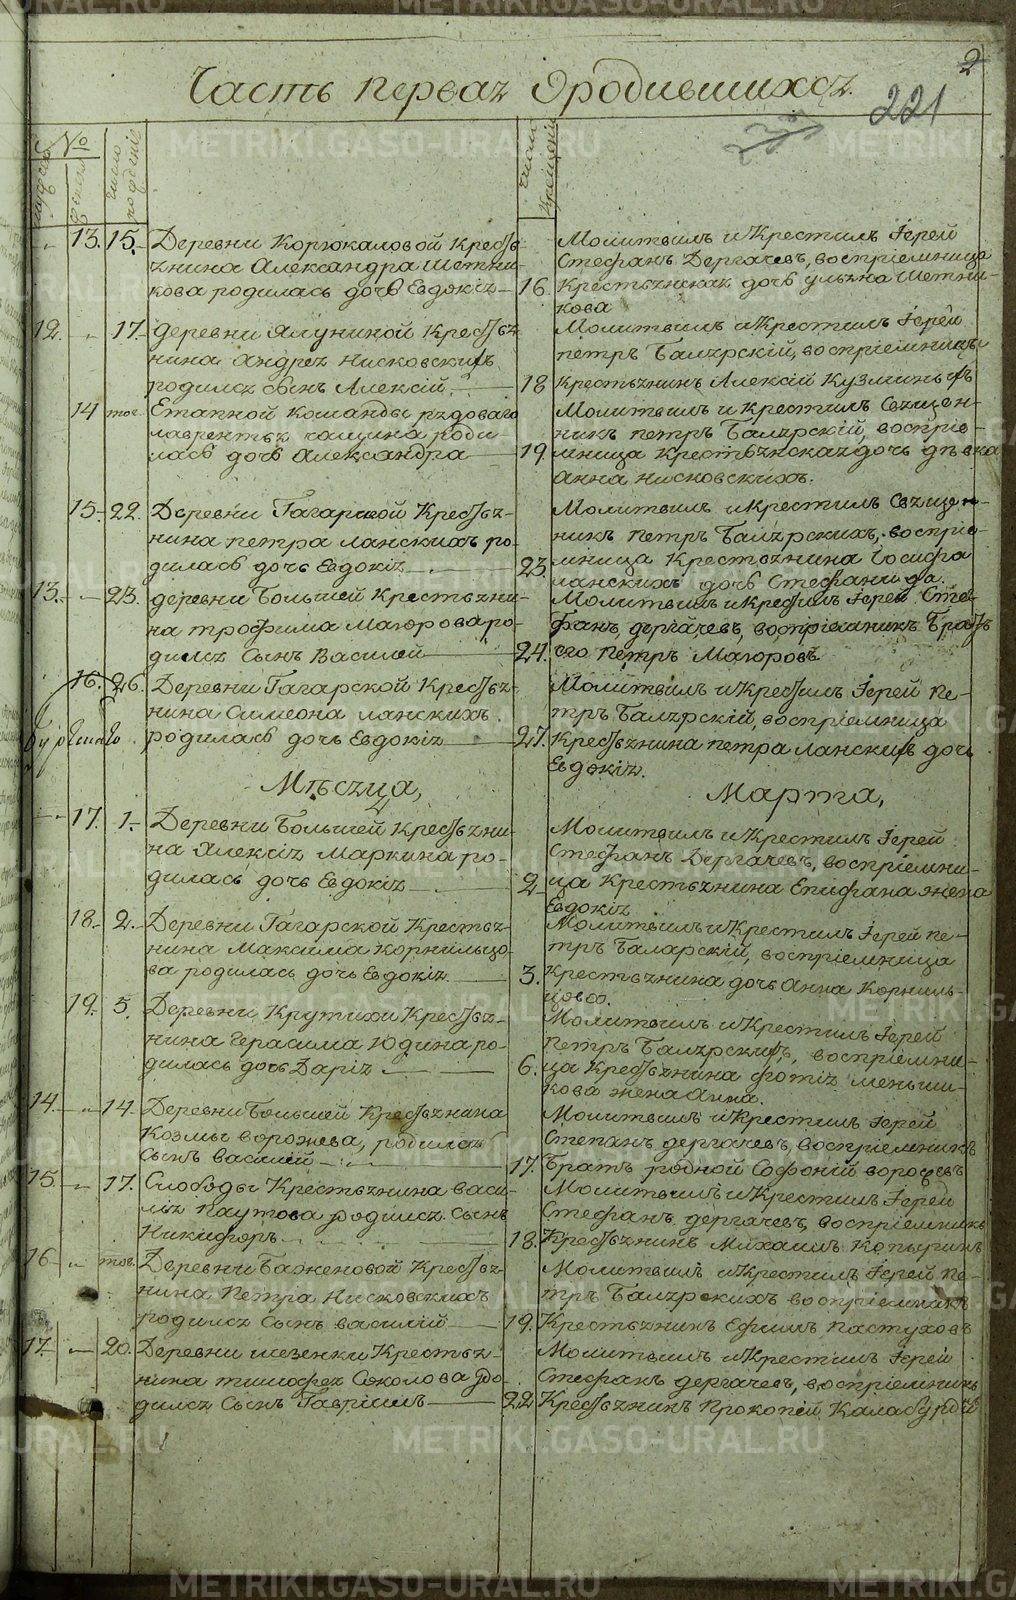 2
Часть первая Ородившихся.
221
№
мужеска
женска
число рождения
число крещения
„ 13. 15. Деревни Корюкаловой Кресть-
янина Александра Шетни-
кова родилась дочь Евдокія
Молитвилъ и Крестилъ Іерей
Стефанъ Дергачевъ, воспріемница
16. Крестьянская дочь ульяна Шетни-
кова
12. „ 17. деревни Ялуниной Крестья-
нина Андрея Нисковскихъ
родился сынъ Алексій
Молитвилъ и Крестилъ Іерей
петръ Балярскій, воспріемникъ
18 крестьянинъ Алексій Кузминыхъ
14 тог. Етапной команды рядоваго
лаврентья
роди-
лась дочь Александра
Молитвилъ и Крестилъ Священ-
никъ петръ Балярскій, воспріе-
19. мница крестьянская дочь девка
Анна Нисковскихъ.
15. 22. Деревни Гагарской Кресть-
янина петра ланскихъ ро-
дилась дочь Евдокія
Молитвилъ и Крестилъ Священ-
никъ петръ Балярскихъ, воспріе-
23. мница Крестьянина Іосифа
ланскихъ дочь Стефанида.
13. „ 23. деревни Большей Крестьяни-
на трофима Маюрова ро-
дился сынъ Василей
Молитвилъ и Крестилъ Іерей Сте-
фанъ, дергачевъ, воспріемникъ Братъ
24. его петръ Маюровъ
16. 26. Деревни Гагарской Кресть-
янина Симеона ланскихъ
родилась дочь Евдокія
Молитвилъ и Крестилъ Іерей пе-
тръ Балярскій, воспріемница
27. Крестьянина петра ланскихъ дочь
Евдокія.
Месяца,
Марта,
„ 17. 1. Деревни Большей Крестьяни-
на Алексія Маркина ро-
дилась дочь Евдокія
Молитвилъ и Крестилъ Іерей
Стефанъ Дергачевъ, воспріемни-
2 ца Крестьянина Епифана жена
Евдокія
18. 2. Деревни Гагарской Крестья-
нина Максима Корнильцо-
ва родилась дочь Евдокія
Молитвилъ и Крестилъ Іерей пе-
тръ Баларскій, воспріемница
3. крестьянина дочь Анна Корниль-
цова.
19. 5. Деревни Крутихи Кресть-
янина Герасима Юдина ро-
дилась дочь Дарія
Молитвилъ и Крестилъ Іерей
Петръ Балярскихъ, воспріемни-
6. ца Крестьянина фотія меньши-
кова жена Анна.
14. „ 14. Деревни Большей Крестьянина
Козмы ворожева, родился
Сынъ василій
Молитвилъ и Крестилъ Іерей
Степанъ дергачевъ, воспріемникъ
17. Братъ родной Софоній
15 „ 17. Слободы Крестьянина васи-
лья Паутова родился Сынъ
Никифоръ
Молитвилъ и Крестилъ Іерей
Стефанъ дергачевъ, воспріемникъ
18. Крестьянинъ Михаилъ Копыринъ
16 „ тог. Деревни Баженовой Кресть-
янина Петра Нисковскихъ
родился Сынъ василій
Молитвилъ и Крестилъ Іерей Пе-
тръ Балярскихъ воспріемникъ
19. Крестьянинъ Ефимъ Пастуховъ
17. „ 20. Деревни мезенки Крестья-
нина тимофея Соколова ро-
дился Сынъ Гавріилъ
Молитвилъ и Крестилъ Іерей
Стефанъ дергачевъ, воспріемникъ
22 Крестьянинъ Прокопей